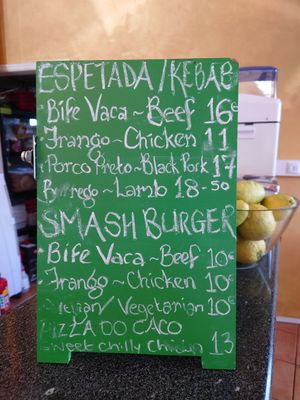 ESPETADA/KEBAB
Bife Vaca~Beef 16€
Frango~Chicken 11
Porco Preto~Black Pork 17
Borrego~Lamb 18-50
SMASH BURGER
Bife Vaca~Beef 10€
Frango~Chicken 10€
/Vegetarian 10€
PIZZA DO CACO
Sweet Chilly Chicken 13